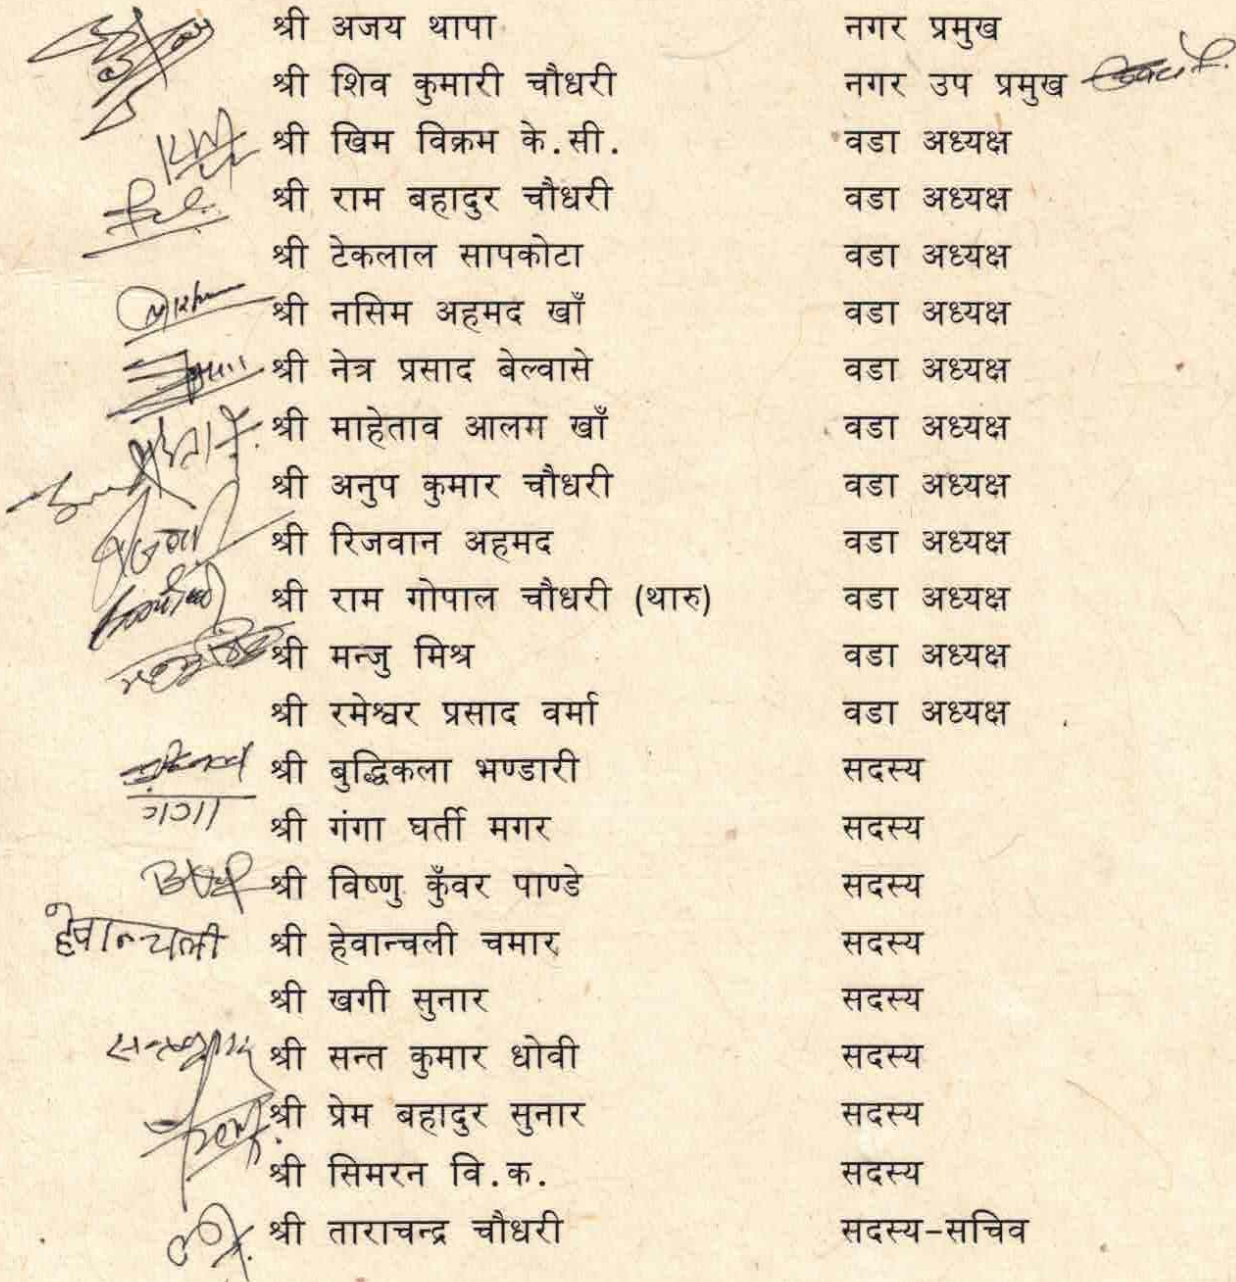 श्री अजय थापा नगर प्रमुख
श्री शिव कुमारी चौधरी नगर उप प्रमुख
श्री खिम विक्रम के.सी. वडा अध्यक्ष
श्री राम बहादुर चौधरी वडा अध्यक्ष
श्री टेकलाल सापकोटा वडा अध्यक्ष
श्री नसिम अहमद खाँ वडा अध्यक्ष
श्री नेत्र प्रसाद बेल्वासे वडा अध्यक्ष
श्री माहेताव आलम खाँ वडा अध्यक्ष
श्री अनुप कुमार चौधरी वडा अध्यक्ष
श्री रिजवान अहमद वडा अध्यक्ष
श्री राम गोपाल चौधरी (थारु) वडा अध्यक्ष
श्री मन्जु मिश्र वडा अध्यक्ष
श्री रमेश्वर प्रसाद वर्मा वडा अध्यक्ष
श्री बुद्धिकला भण्डारी सदस्य
गंगा श्री गंगा घर्ती मगर सदस्य
श्री विष्णु कुँवर पाण्डे सदस्य
हेवान्चली श्री हेवान्चली चमार सदस्य
श्री खगी सुनार सदस्य
श्री सन्त कुमार धोवी सदस्य
श्री प्रेम बहादुर सुनार सदस्य
श्री सिमरन वि.क. सदस्य
श्री ताराचन्द्र चौधरी सदस्य-सचिव